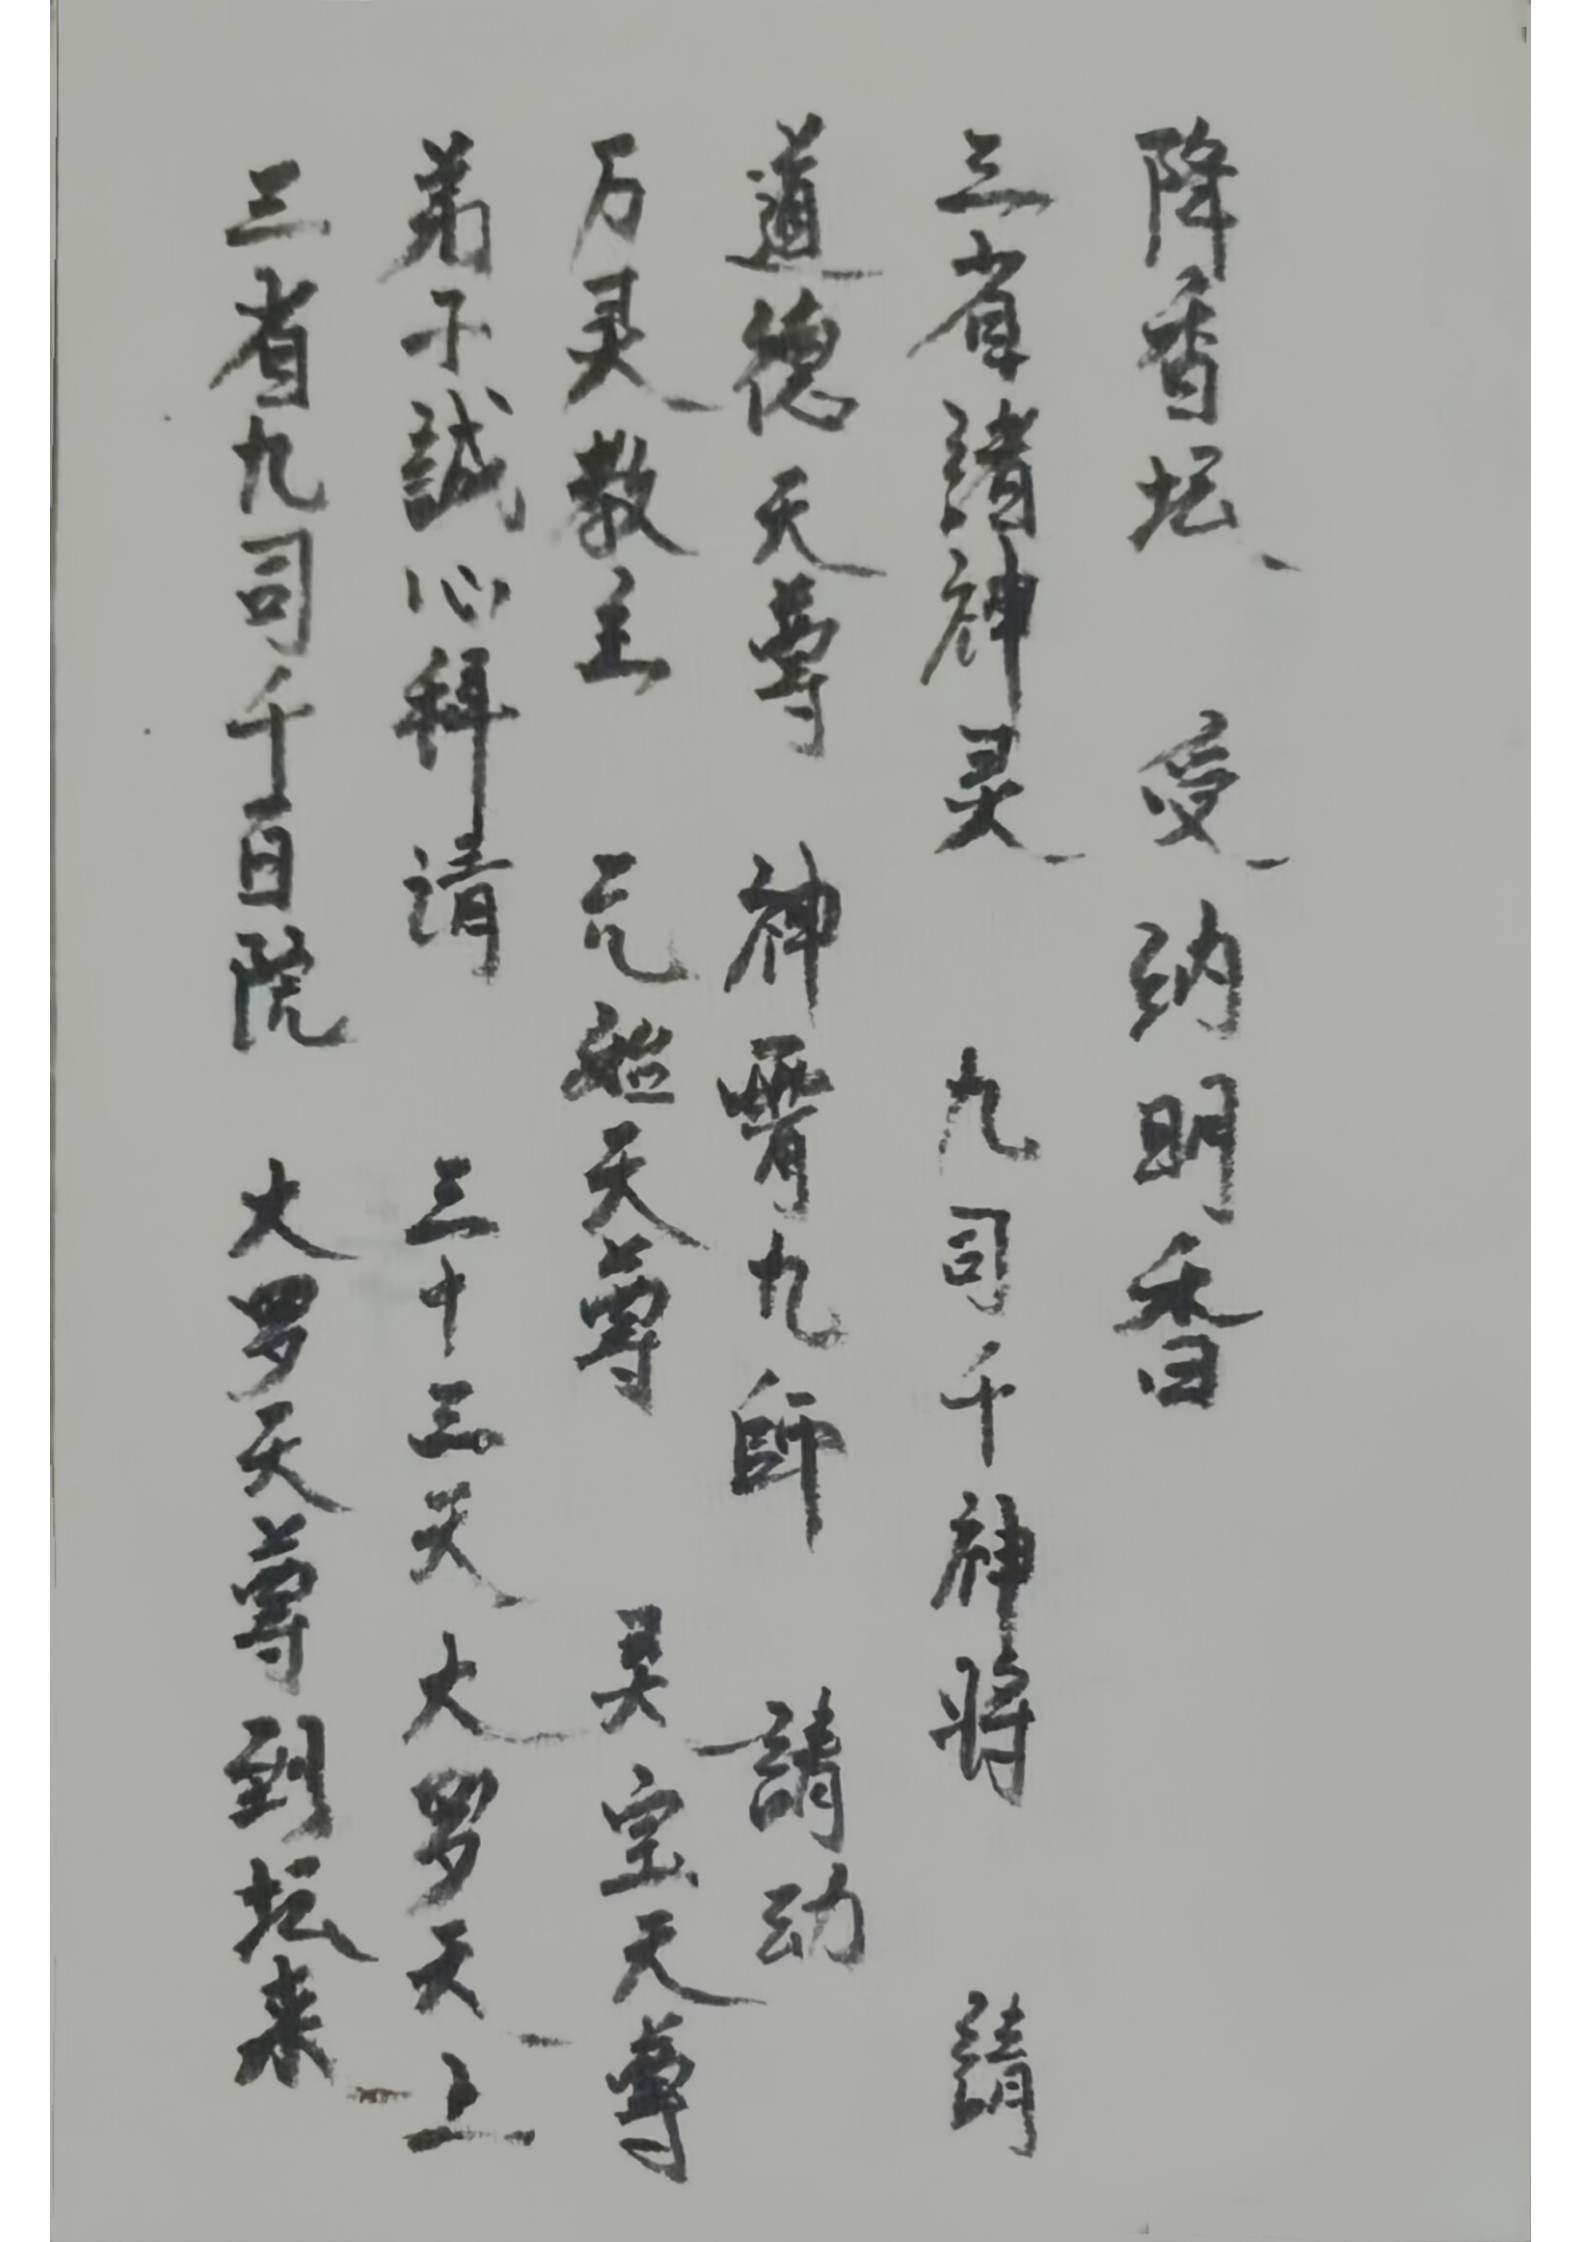 降香坛 受纳明香
三省諸神灵 九司千神将 請
道德天尊 神霄九師 請动
万灵教主 元始天尊 灵宝天尊
弟子誠心拜请 三十三天大罗天上
三省九司千百院 大罗天尊到坛来